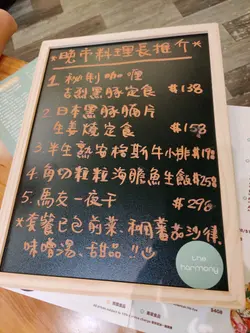 *晚市料理長推介*
1. 秘制咖喱
吉列黑豚定食 $138
2. 日本黑豚腩片
生姜燒定食 $158
3. 半生熟安格斯牛小排 $198
4. 角切粒粒海膽魚生飯 $258
5. 喬友一夜干 $296
*套餐已包前菜、稠蕃茄沙律
味噌湯、甜品!!
Line
harmony